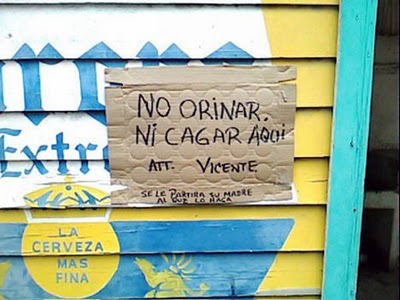 orona
Extra
NO ORINAR.
NI CAGAR AQUI
ATT. VICENTE.
SE LE PARTIRA SU MADRE
AL QUE LO HAGA
LA
CERVEZA
MAS
FINA